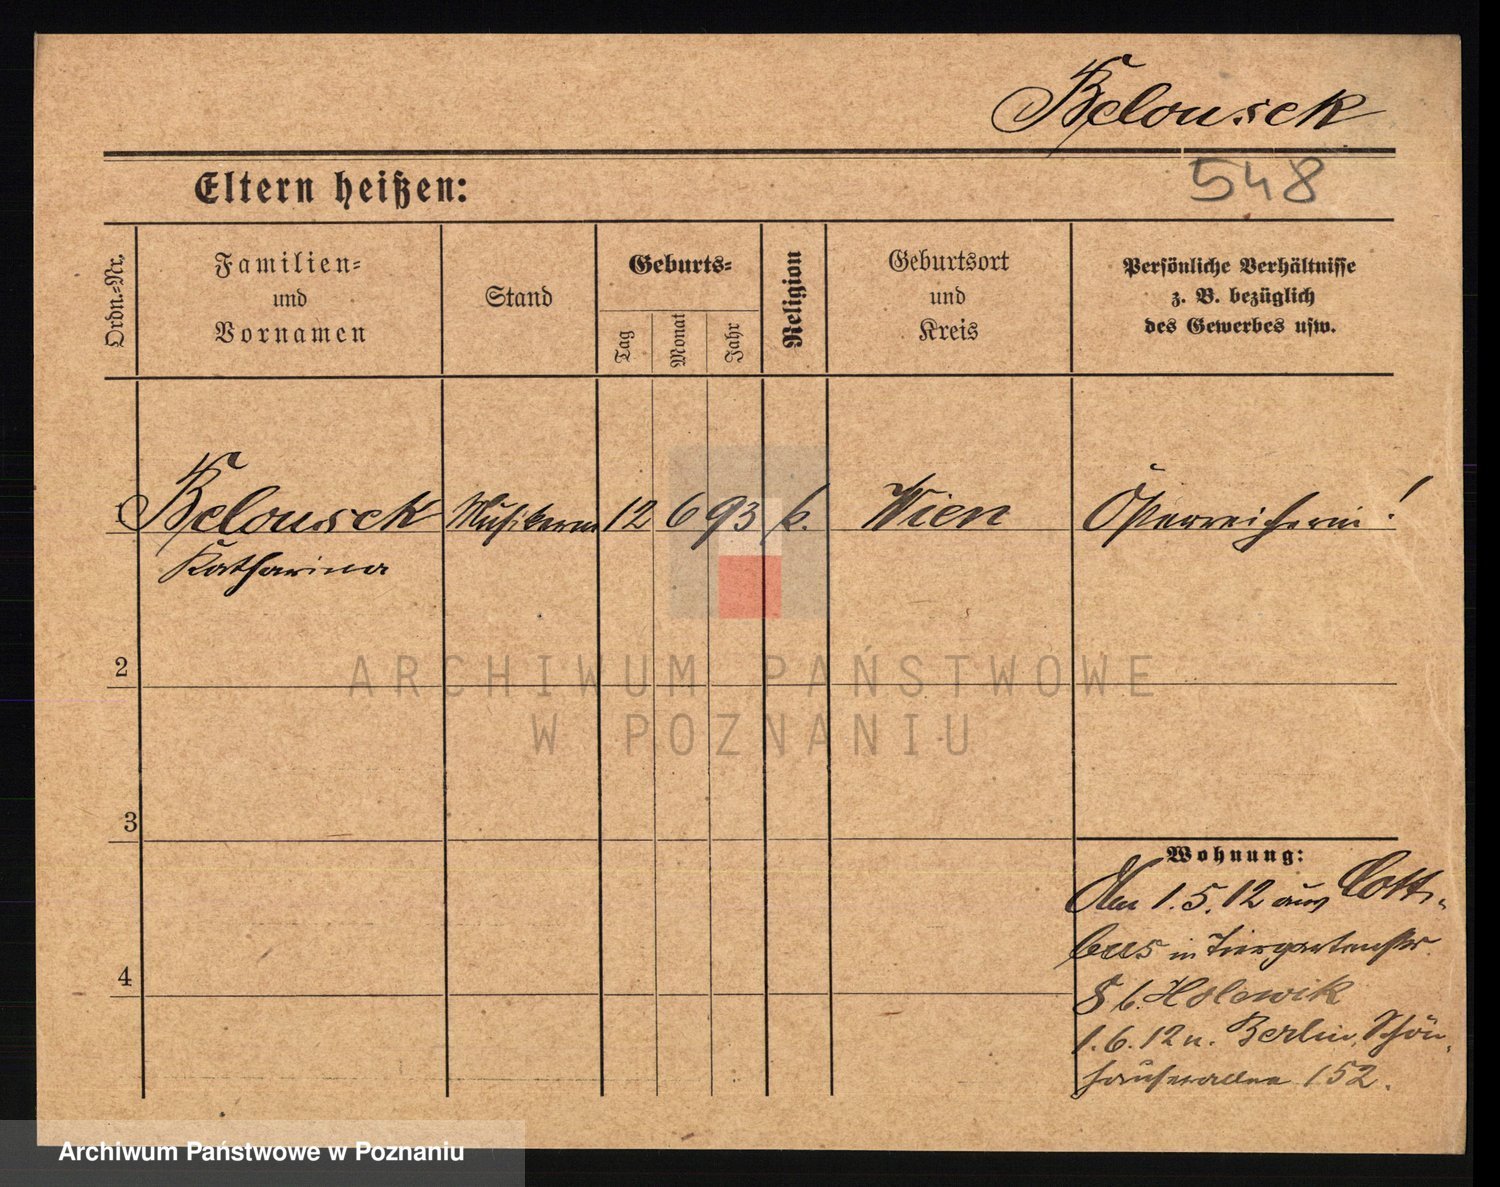 Belousek
548
Eltern heißen:
Ordn.-Nr.
Familien-
und
Vornamen
Stand
Geburts-
Tag
Monat
Jahr
Religion
Geburtsort
und
Kreis
Persönliche Verhältnisse
z. B. bezüglich
des Gewerbes usw.
Belousek Musikerin 12 6 93 k. Wien Österreicherin!
Katharina
2
ARCHIWUM PAŃSTWOWE
W POZNANIU
3
Wohnung:
Am 1.5.12 aus Cott-
bus in Tiergartenstr.
8 b.
1.6.12 n. Berlin, Schön-
hauserallee 152.
4
Archiwum Państwowe w Poznaniu